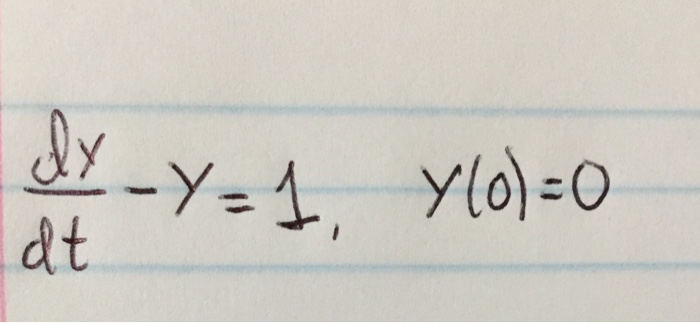 dy/dt - y = 1, y(0) = 0